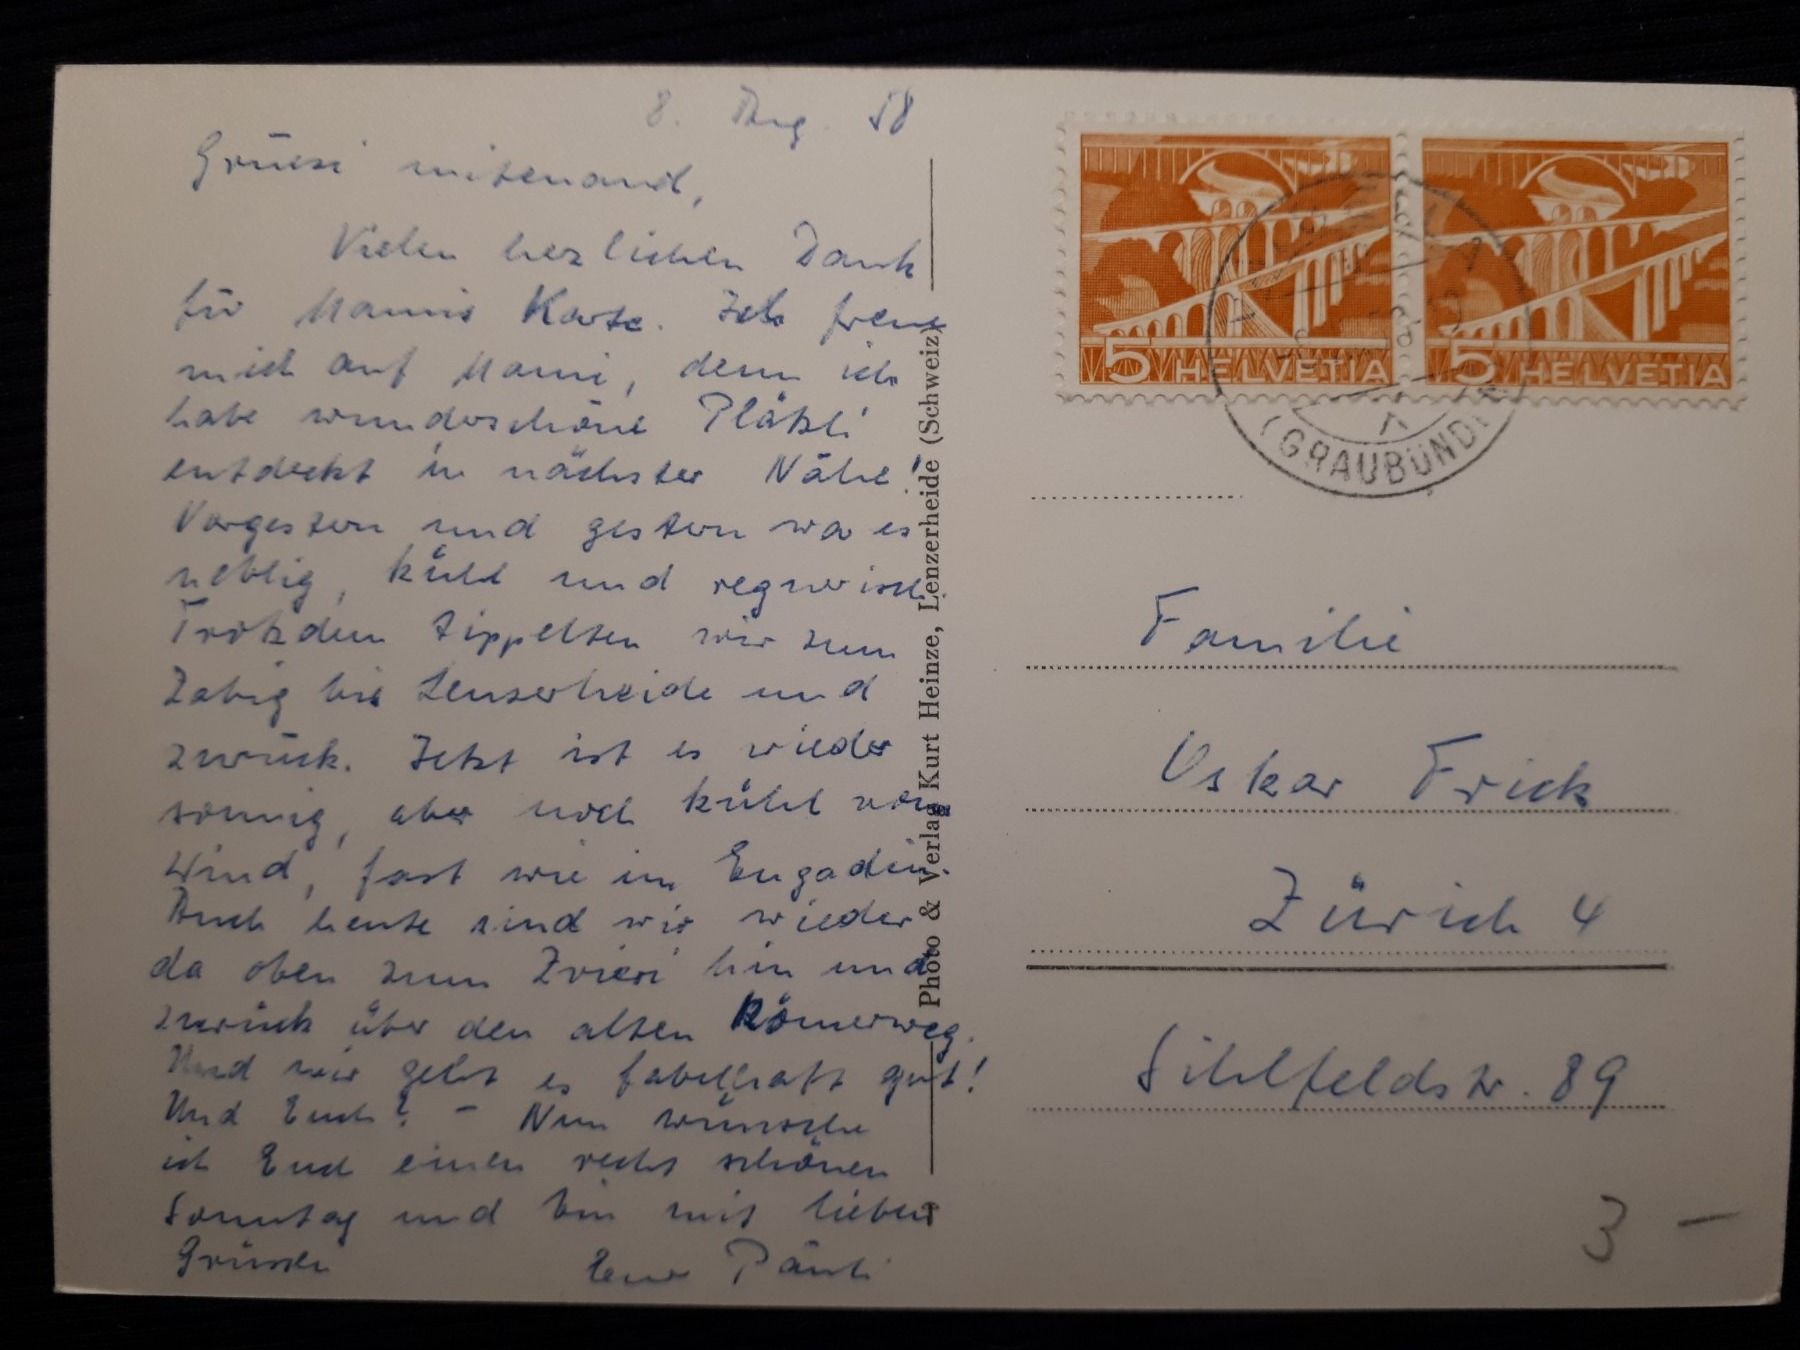 8. Aug. 58
Grüezi mitenand,
Vielen herzlichen Dank
für Mamis Karte. Ich freue
mich auf Mami, denn ich
habe wunderschöne Plätzli
entdeckt in nächster Nähe!
Vorgestern und gestern war es
neblig, kühl und regnerisch.
Trotzdem tippelten wir zum
Zabig bis Lenzerheide und
zurück. Jetzt ist es wieder
sonnig, aber noch kühl vom
Wind, fast wie im Engadin.
Auch heute sind wir wieder
da oben zum Zvieri hin und
zurück über den alten Römerweg.
Und mir geht es fabelhaft gut!
Und Euch? – Nun wünsche
ich Euch einen recht schönen
Sonntag und bin mit lieben
Grüssen Euer Päuli
Photo & Verlag Kurt Heinze, Lenzerheide (Schweiz)
5 HELVETIA 5 HELVETIA
(GRAUBÜNDEN)
Familie
Oskar Frick
Zürich 4
Sihlfeldstr. 89
3 –